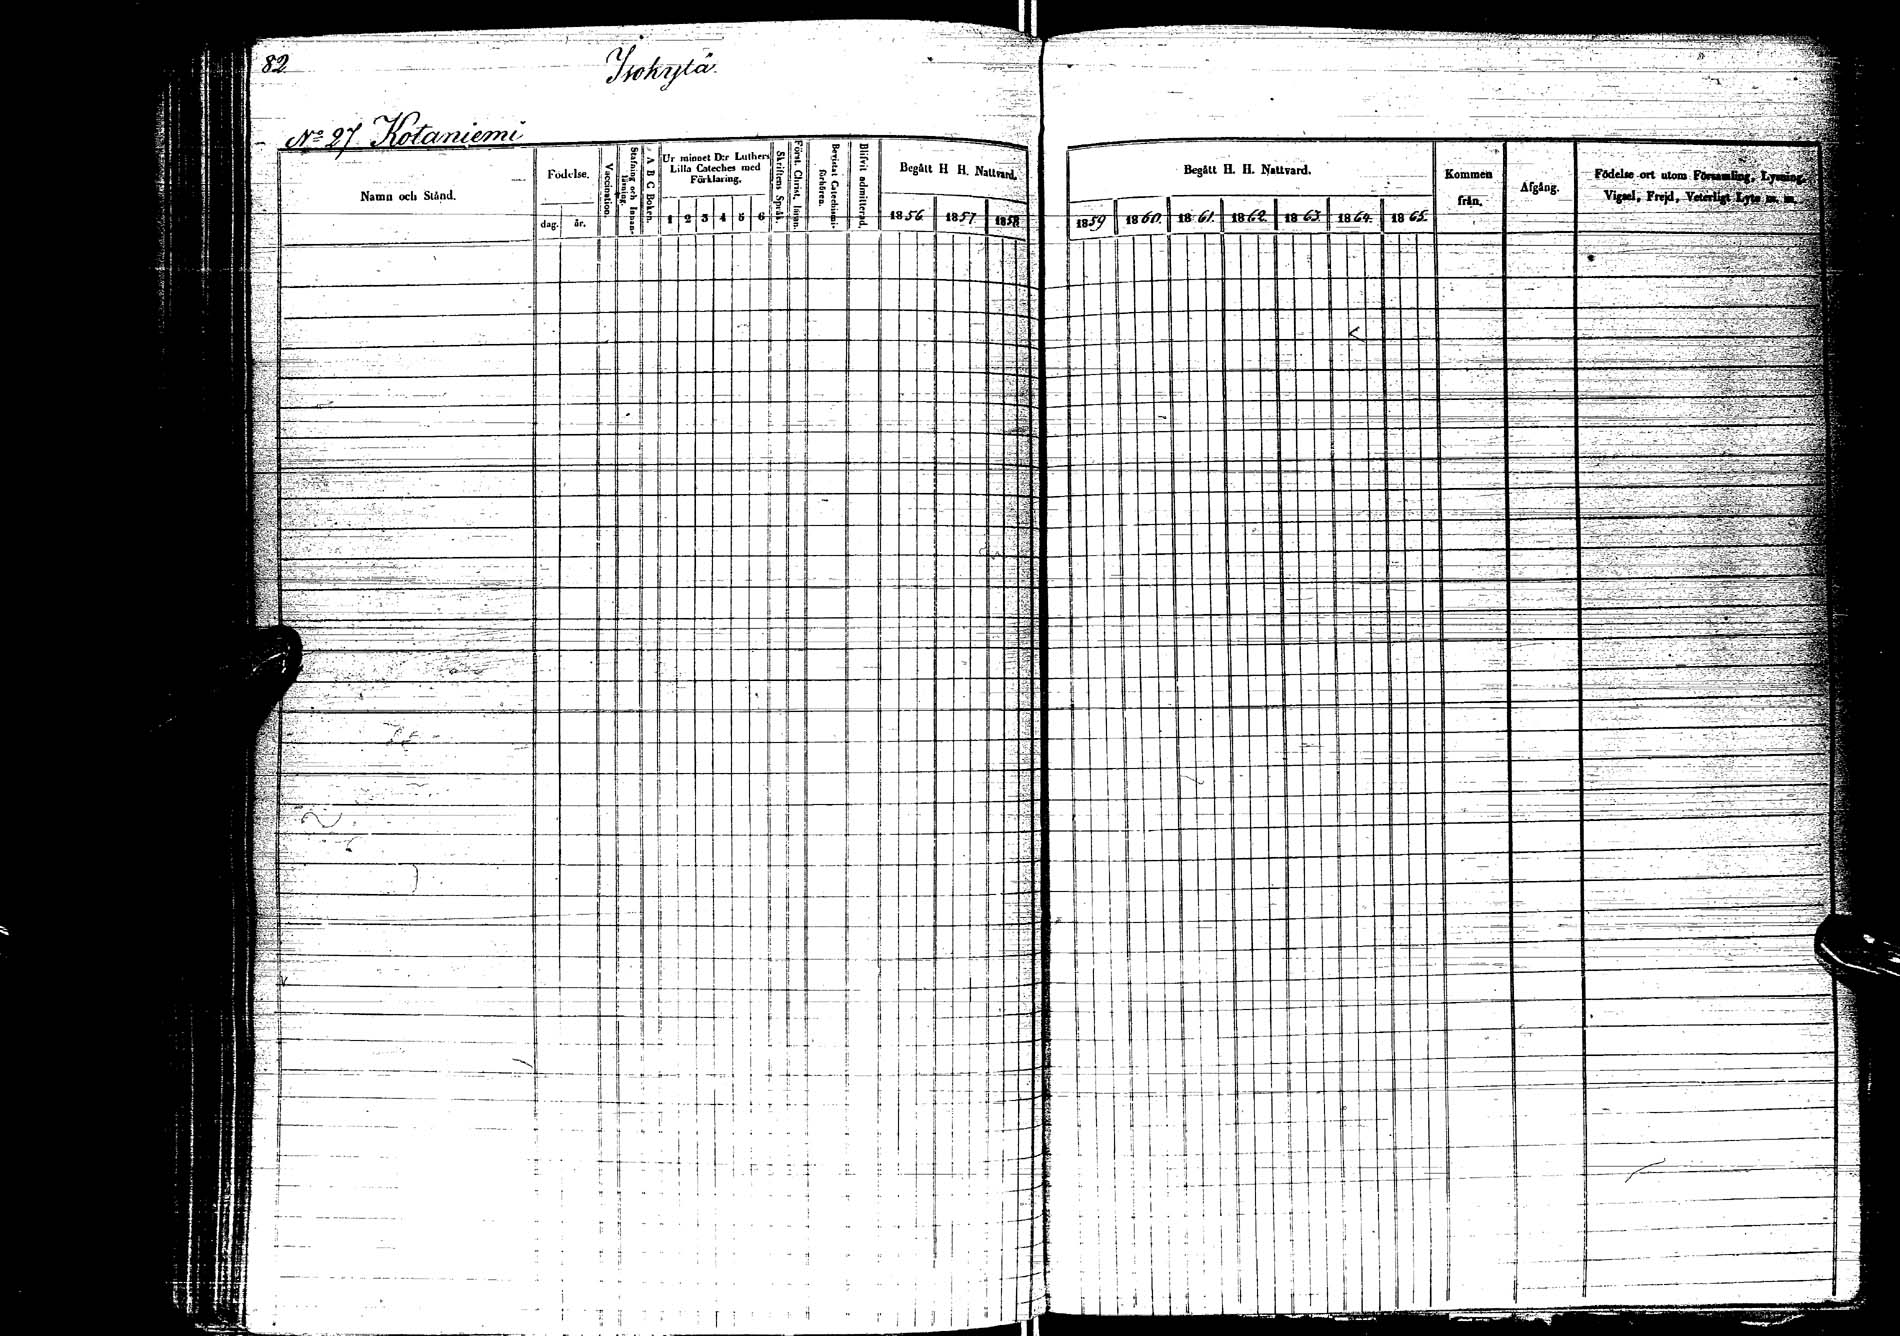 82.
Isokylä.
No 27 Kotaniemi
Namn och Stånd.
Födelse.
dag.
år.
Vaccination.
Stafning och Innanläsning.
A B C Boken.
Ur minnet D:r Luthers
Lilla Cateches med
Förklaring.
1 2 3 4 5 6
Skriftens Språk.
Först. Christ. Innn.
Bevistat Catechismiförhören.
Blifvit admitterad.
Begått H H. Nattvard.
1856 1857 1858
Begått H. H. Nattvard.
1859 1860. 1861. 1862. 1863. 1864. 1865.
Kommen
från.
Afgång.
Födelse ort utom Församling, Lysning,
Vigsel, Frejd, Veterligt Lyte m. m.